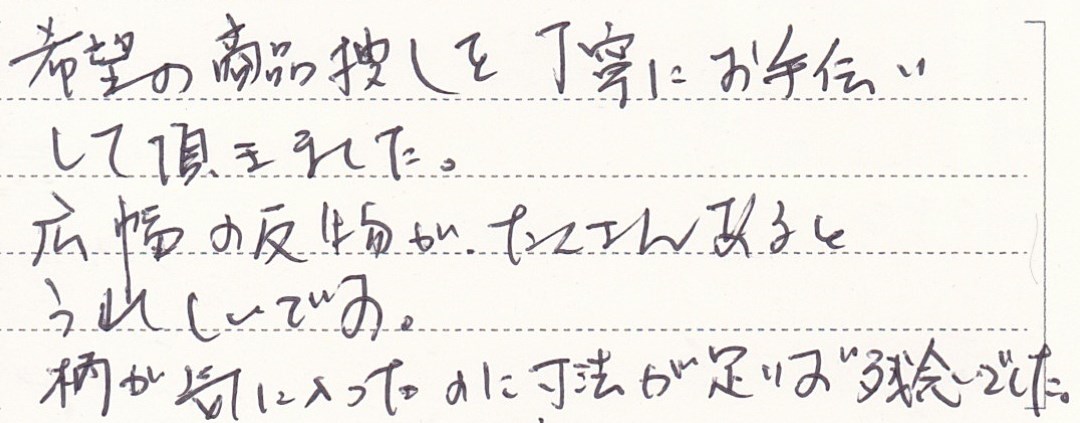 希望の商品捜しを丁寧にお手伝い
して頂きました。
広幅の反物が、たくさんあると
うれしいです。
柄が気に入ったのに寸法が足りず残念でした。